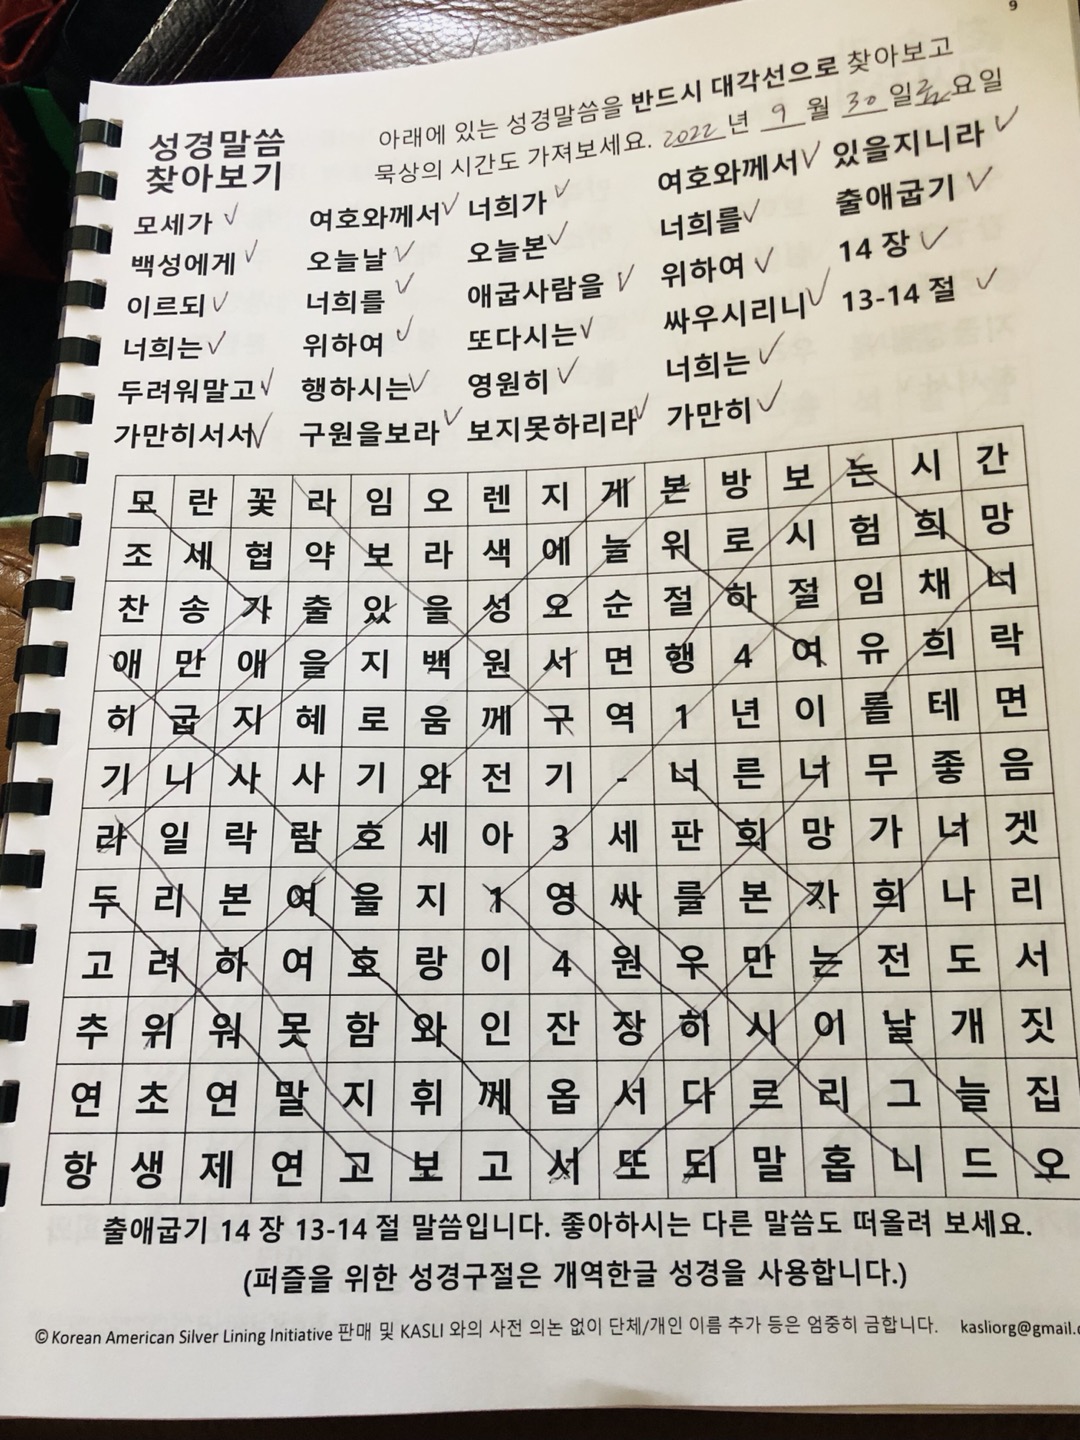 9
성경말씀
찾아보기
아래에 있는 성경말씀을 반드시 대각선으로 찾아보고
묵상의 시간도 가져보세요. 2022 년 9 월 30 일 요일
모세가 여호와께서 너희가 여호와께서 있을지니라
백성에게 오늘날 오늘본 너희를 출애굽기
이르되 너희를 애굽사람을 위하여 14 장
너희는 위하여 또다시는 싸우시리니 13-14 절
두려워말고 행하시는 영원히 너희는
가만히서서 구원을보라 보지못하리라 가만히
모 란 꽃 라 임 오 렌 지 게 본 방 보 는 시 간
조 세 협 약 보 라 색 에 늘 위 로 시 험 희 망
찬 송 가 출 있 을 성 오 순 절 하 절 임 채 너
애 만 애 을 지 백 원 서 면 행 4 여 유 희 락
히 굽 지 혜 로 움 께 구 역 1 년 이 를 테 면
기 니 사 사 기 와 전 기 - 너 른 너 무 좋 음
라 일 락 람 호 세 아 3 세 판 희 망 가 너 겟
두 리 본 여 을 지 1 영 싸 를 본 가 희 나 리
고 려 하 여 호 랑 이 4 원 우 만 는 전 도 서
추 위 워 못 함 와 인 잔 장 히 시 이 날 개 짓
연 초 연 말 지 휘 께 옵 서 다 르 리 그 늘 집
항 생 제 연 고 보 고 서 또 되 말 홉 니 드 오
출애굽기 14 장 13-14 절 말씀입니다. 좋아하시는 다른 말씀도 떠올려 보세요.
(퍼즐을 위한 성경구절은 개역한글 성경을 사용합니다.)
© Korean American Silver Lining Initiative 판매 및 KASLI 와의 사전 의논 없이 단체/개인 이름 추가 등은 엄중히 금합니다. kasliorg@gmail.c